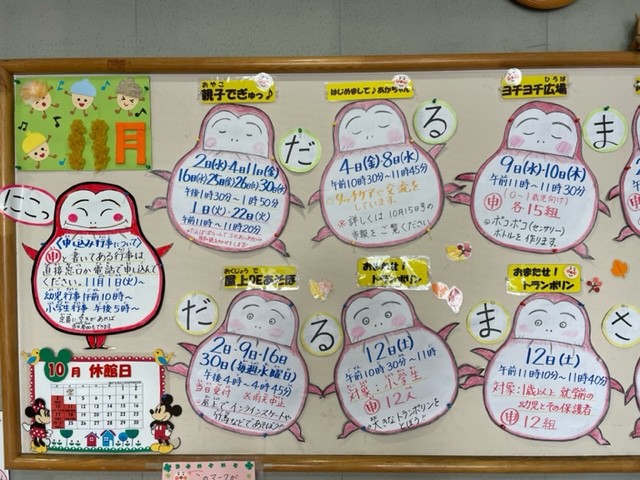 11月
にこっ
(申し込み行事について)
申と書いてある行事は
直接窓口か電話で申し込んで
ください。11月1日(火)~
幼児行事 午前10時~
小学生行事 午後5時~
10月 休館日
おやこ
親子でぎゅっ♪
2日(水)・4日・11日(金)
16日(水)・25日(金)・28日(月)・30日(水)
午後1時30分~1時50分
1日(火)・22日(火)
午前11時~11時20分
だ
はじめまして♪あかちゃん
4日(金)・8日(火)
午前10時30分~11時45分
タッチケアで交流を
しています。
※詳しくは10月15日号の
市報をご覧ください
る
ひろば
ヨチヨチ広場
9日(水)・10日(木)
午前11時~11時30分
(0~1歳児向け)
申 各15組
☆ポコポコ(センサリー)
ボトルを作ります。
ま
だ
おくじょう で
屋上DEあそぼ
2日・9日・16日
30日(毎週水曜日)
午後4時~4時45分
当日受付 ※雨天中止
☆屋上でインラインスケートや
竹馬などであそぼう♪
る
おまたせ!
トランポリン
12日(土)
午前10時30分~11時
対象:小学生
申 12人
☆大きなトランポリンを
とぼう♪
ま
おまたせ!
トランポリン
12日(土)
午前11時10分~11時40分
対象:1歳以上就学前の
幼児とその保護者
申 12組
さ
このマークが